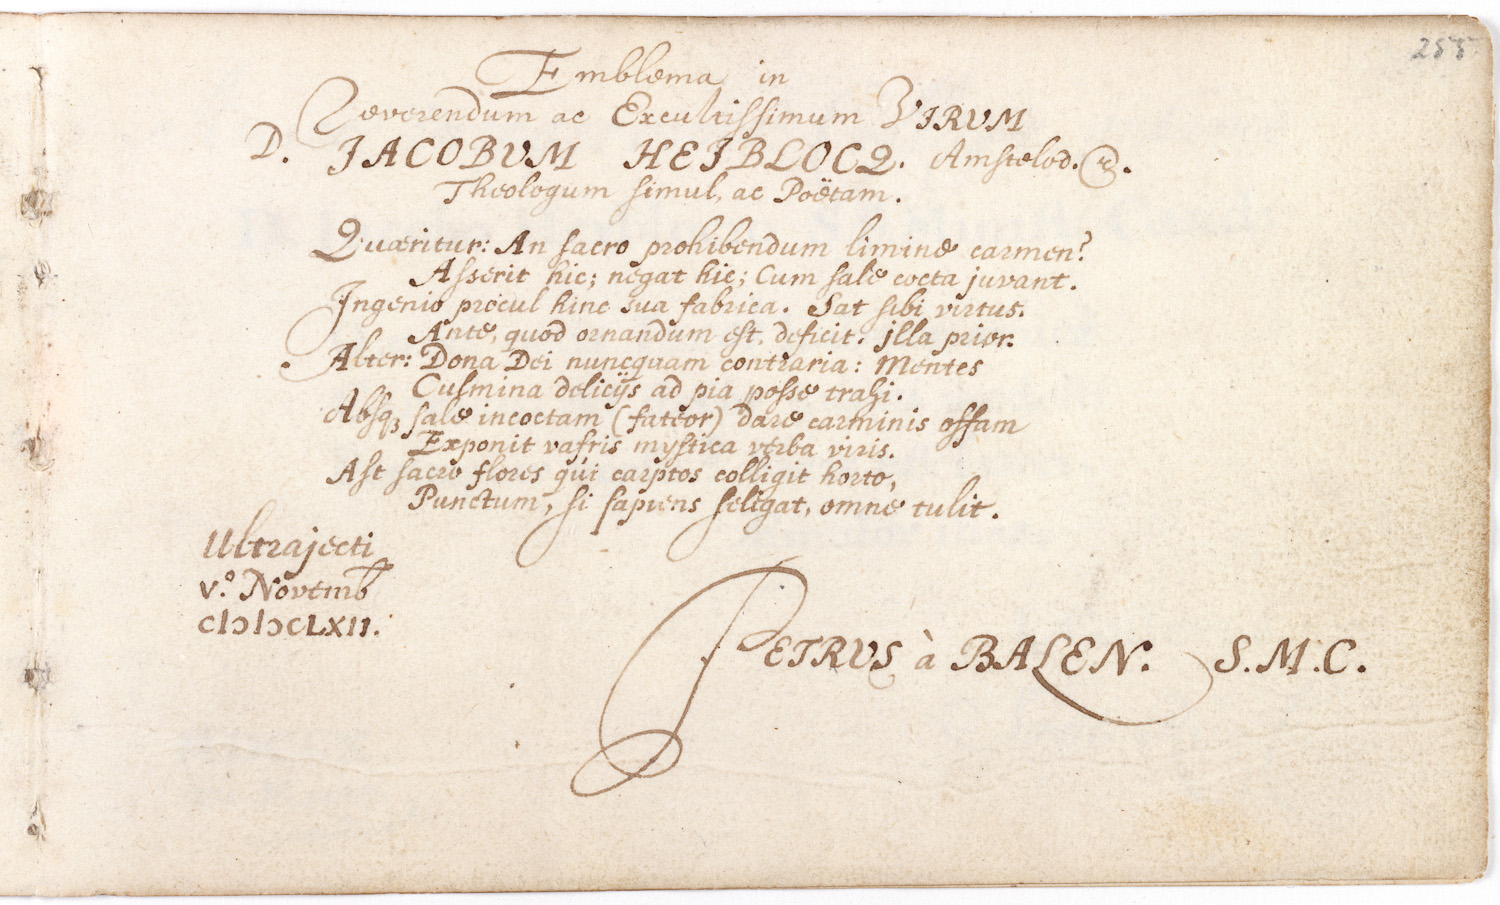 255
Emblema in
Reverendum ac Excultissimum VIRUM
D. JACOBUM HEIBLOCQ. Amstelod.
Theologum simul, ac Poëtam.
Quæritur: An sacro prohibendum limine carmen?
Asserit hic; negat hic; Cum sale cocta juvant.
Ingenio procul hinc sua fabrica. Sat sibi virtus.
Ante, quod ornandum est, deficit: illa prior.
Alter: Dona Dei nuncquam contraria: Mentes
Culmina delicijs ad pia posse trahi.
Absq; sale incoctam (fateor) dare carminis offam
Exponit vafris mystica verba viris.
Ast sacro flores qui carptos colligit horto,
Punctum, si sapiens seligat, omne tulit.
Ultrajecti
V.º Novemb
CIↃIↃCLXII.
PETRUS à BALEN. S.M.C.